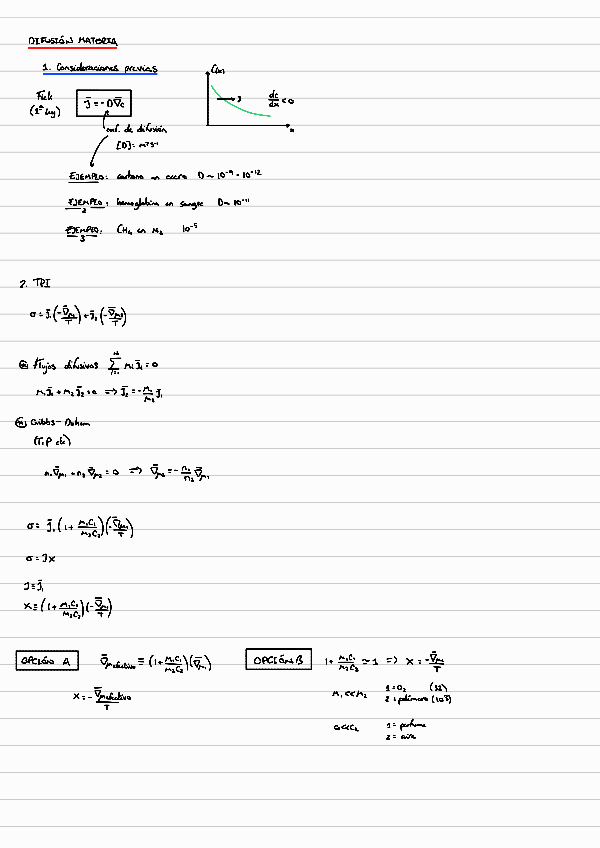 DIFUSIÓN MATERIA
1. Consideraciones previas
C(x)
Fick
(1ª ley)
J̄ = -D∇̄c
J
dc/dx < 0
x
coef. de difusión
[D] = m²s⁻¹
EJEMPLO: carbono en acero D ~ 10⁻⁹ - 10⁻¹²
EJEMPLO 2: hemoglobina en sangre D ~ 10⁻¹¹
EJEMPLO 3: CH₄ en N₂ 10⁻⁵
2. TPI
σ = J̄₁(-∇̄μ₁/T) + J̄₂(-∇̄μ₂/T)
Flujos difusivos Σ mᵢJ̄ᵢ = 0
m₁J̄₁ + m₂J̄₂ = 0 ⇒ J̄₂ = -m₁/m₂ J̄₁
Gibbs-Duhem
(T, P cte)
n₁∇̄μ₁ + n₂∇̄μ₂ = 0 ⇒ ∇̄μ₂ = -n₁/n₂ ∇̄μ₁
σ = J̄₁(1 + m₁C₁/m₂C₂)(-∇̄μ₁/T)
σ = JX
J ≡ J̄₁
X ≡ (1 + m₁C₁/m₂C₂)(-∇̄μ₁/T)
OPCIÓN A ∇̄μefectivo ≡ (1 + m₁C₁/m₂C₂)(∇̄μ₁)
X = -∇̄μefectivo/T
OPCIÓN B 1 + m₁C₁/m₂C₂ ≃ 1 ⇒ X = -∇̄μ₁/T
m₁ << m₂ 1 = O₂ (32)
2 = polímero (10³)
c₁ << c₂ 1 = perfume
2 = aire